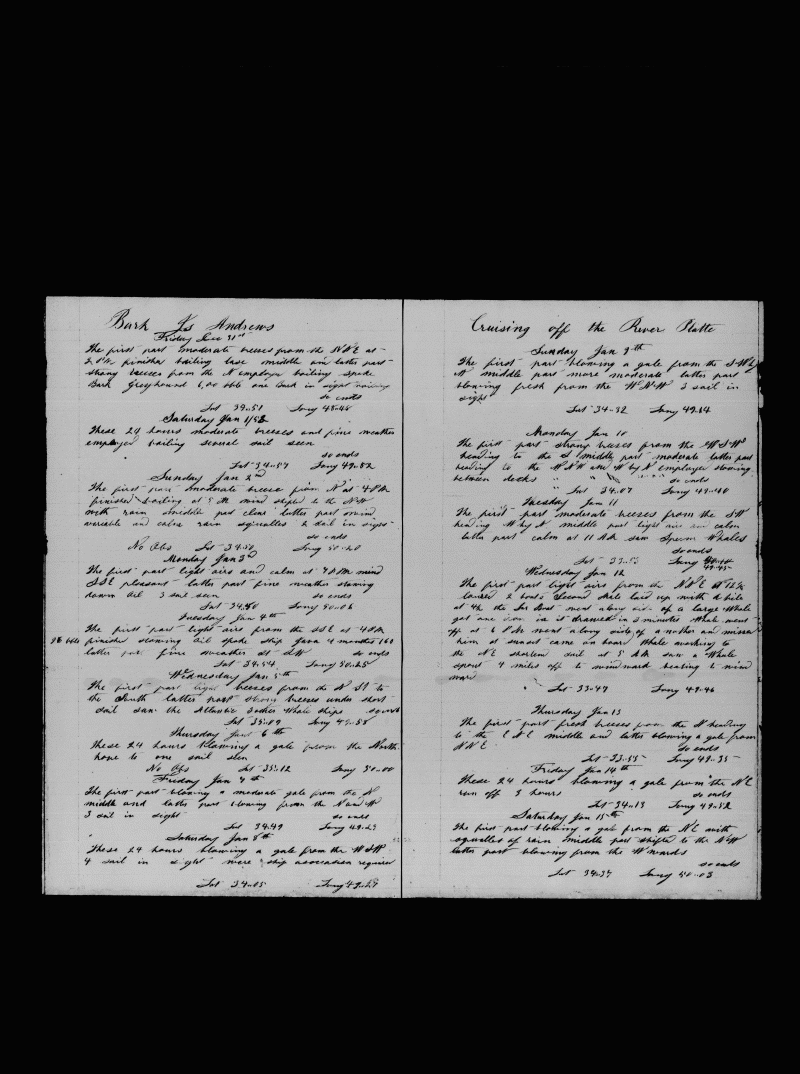 Bark Jas Andrews
Friday Dec 31st
The first part moderate breeses from the NNE at
2 PM finished boiling last middle and latter part
strong breeses from the N employed boiling spoke
Bark Greyhound 600 bbls one Bark in sight
so ends
Lat 34.51 Long 48.48
Saturday Jan 1/58
These 24 hours moderate breeses and fine weather
employed boiling several sail seen
so ends
Lat 34.47 Long 49.52
Sunday Jan 2nd
The first part moderate breese from N at 4 PM
finished boiling at 9 PM wind shifted to the NW
with rain middle part clear latter part wind
variable and calm rain squalles 2 sail in sight
so ends
No Obs Lat 34.50 Long 50.20
Monday Jan 3rd
The first part light airs and calm at 4 PM wind
SSE pleasant latter part fine weather stowing
down Oil 3 sail seen so ends
Lat 34.40 Long 50.06
Tuesday Jan 4th
The first part light airs from the SSE at 4 PM
finished stowing Oil spoke Ship Java 4 months 160
latter part fine weather at SW so ends
Lat 34.54 Long 50.25
Wednesday Jan 5th
The first part light breeses from the N St to
the South latter part strong breeses under short
sail saw the Atlantic & other Whale ships so ends
Lat 35.09 Long 49.58
Thursday Jan 6th
These 24 hours blowing a gale from the North
hove to one sail seen
No Obs Lat 35.12 Long 50.00
Friday Jan 7th
The first part blowing a moderate gale from the N
middle and latter part blowing from the N and W
3 sail in sight so ends
Lat 34.49 Long 49.23
Saturday Jan 8th
These 24 hours blowing a gale from the WSW
4 sail in sight more ship required
Lat 34.05 Long 49.27
Cruising off the River Platte
Sunday Jan 9th
The first part blowing a gale from the SW
middle part more moderate latter part
blowing fresh from the WNW 3 sail in
sight
Lat 34.32 Long 49.14
Monday Jan 10
The first part strong breeses from the WSW
heading to the S middle part moderate latter part
heading to the WNW and W by N employed stowing
between decks so ends
Lat 34.07 Long 49.40
Tuesday Jan 11
The first part moderate breeses from the SW
heading W by N middle part light airs and calm
latter part calm at 11 AM saw Sperm Whales
so ends
Lat 33.53 Long
49.45
Wednesday Jan 12
The first part light airs from the NNE at 12½
lowred 2 boats Second Mate laid up with a bile
at 4½ the Lar Boat went along side of a large Whale
got one iron in it drawed in 3 minutes Whale went
off at 6 PM went along side of another and missed
him at sunset came on board Whale working to
the NE shortend sail at 5 AM saw a Whale
spout 4 miles off to windward beating to wind
ward
Lat 33.47 Long 49.46
Thursday Jan 13
The first part fresh breeses from the N heading
to the ENE middle and latter blowing a gale from
NNE so ends
Lat 33.55 Long 49.35
Friday Jan 14th
These 24 hours blowing a gale from the NE
run off 3 hours so ends
Lat 34.13 Long 49.52
Saturday Jan 15th
The first part blowing a gale from the NE with
squalles of rain middle part shifted to the NW
latter part blowing from the W wards
so ends
Lat 34.34 Long 50.03